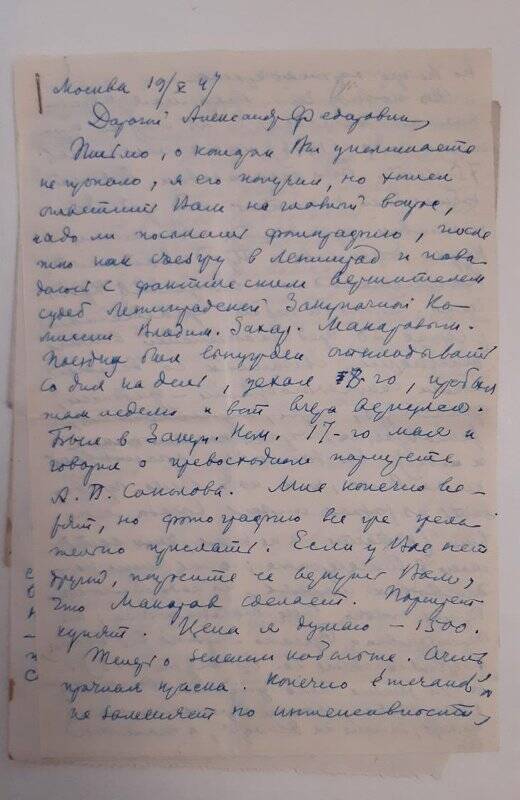 Москва 19/V 47
Дорогой Александр Федорович,
Письмо, о котором Вы упоминаете
не пропало, я его получил, но хотел
ответить Вам на главный вопрос,
надо ли посылать фотографию, после
того как съезжу в Ленинград и пови-
даюсь с фактическим вершителем
судеб Ленинградской Закупочной Ко-
миссии Владим. Захар. Макаровым.
Поездку был вынужден откладывать
со дня на день, уехал 8-го, пробыл
там неделю и вот вчера вернулся.
Был в Закуп. Ком. 17-го мая и
говорил о превосходном портрете
А. П. Соколова. Мне конечно ве-
рят, но фотографию все же
прислать. Если у Вас нет
другой, попросите ее вернуть Вам,
что Макаров сделает. Портрет
купят. Цена я думаю – 1500.
о зеленом кобальте. Очень
прочная краска. Конечно
не заменяет по интенсивности,